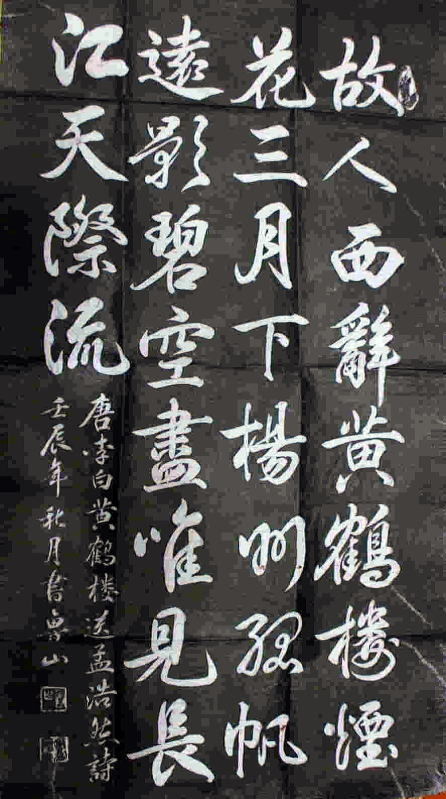 故人西辭黄鶴樓煙
花三月下楊州孤帆
遠影碧空盡唯見長
江天際流
唐李白黄鶴楼送孟浩然詩
壬辰年秋月書魯山